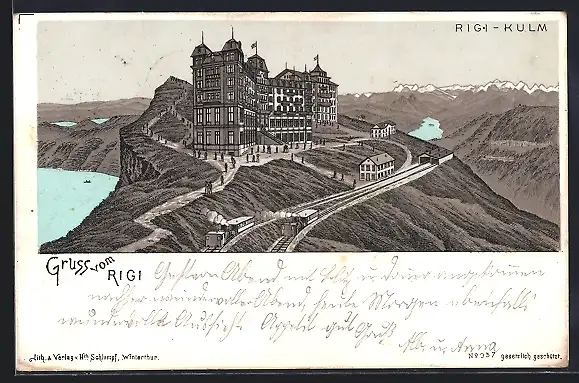 RIGI - KULM
Gruss vom RIGI
Gestern Abend mit angekommen
nachher wundervoller Abend, heute Morgen ebenfalls
wundervolle Aussicht. Appetit gut Gruß
u. Anna
Lith. & Verlag v. Hch Schlumpf, Winterthur.
No 957 gesetzlich geschützt.